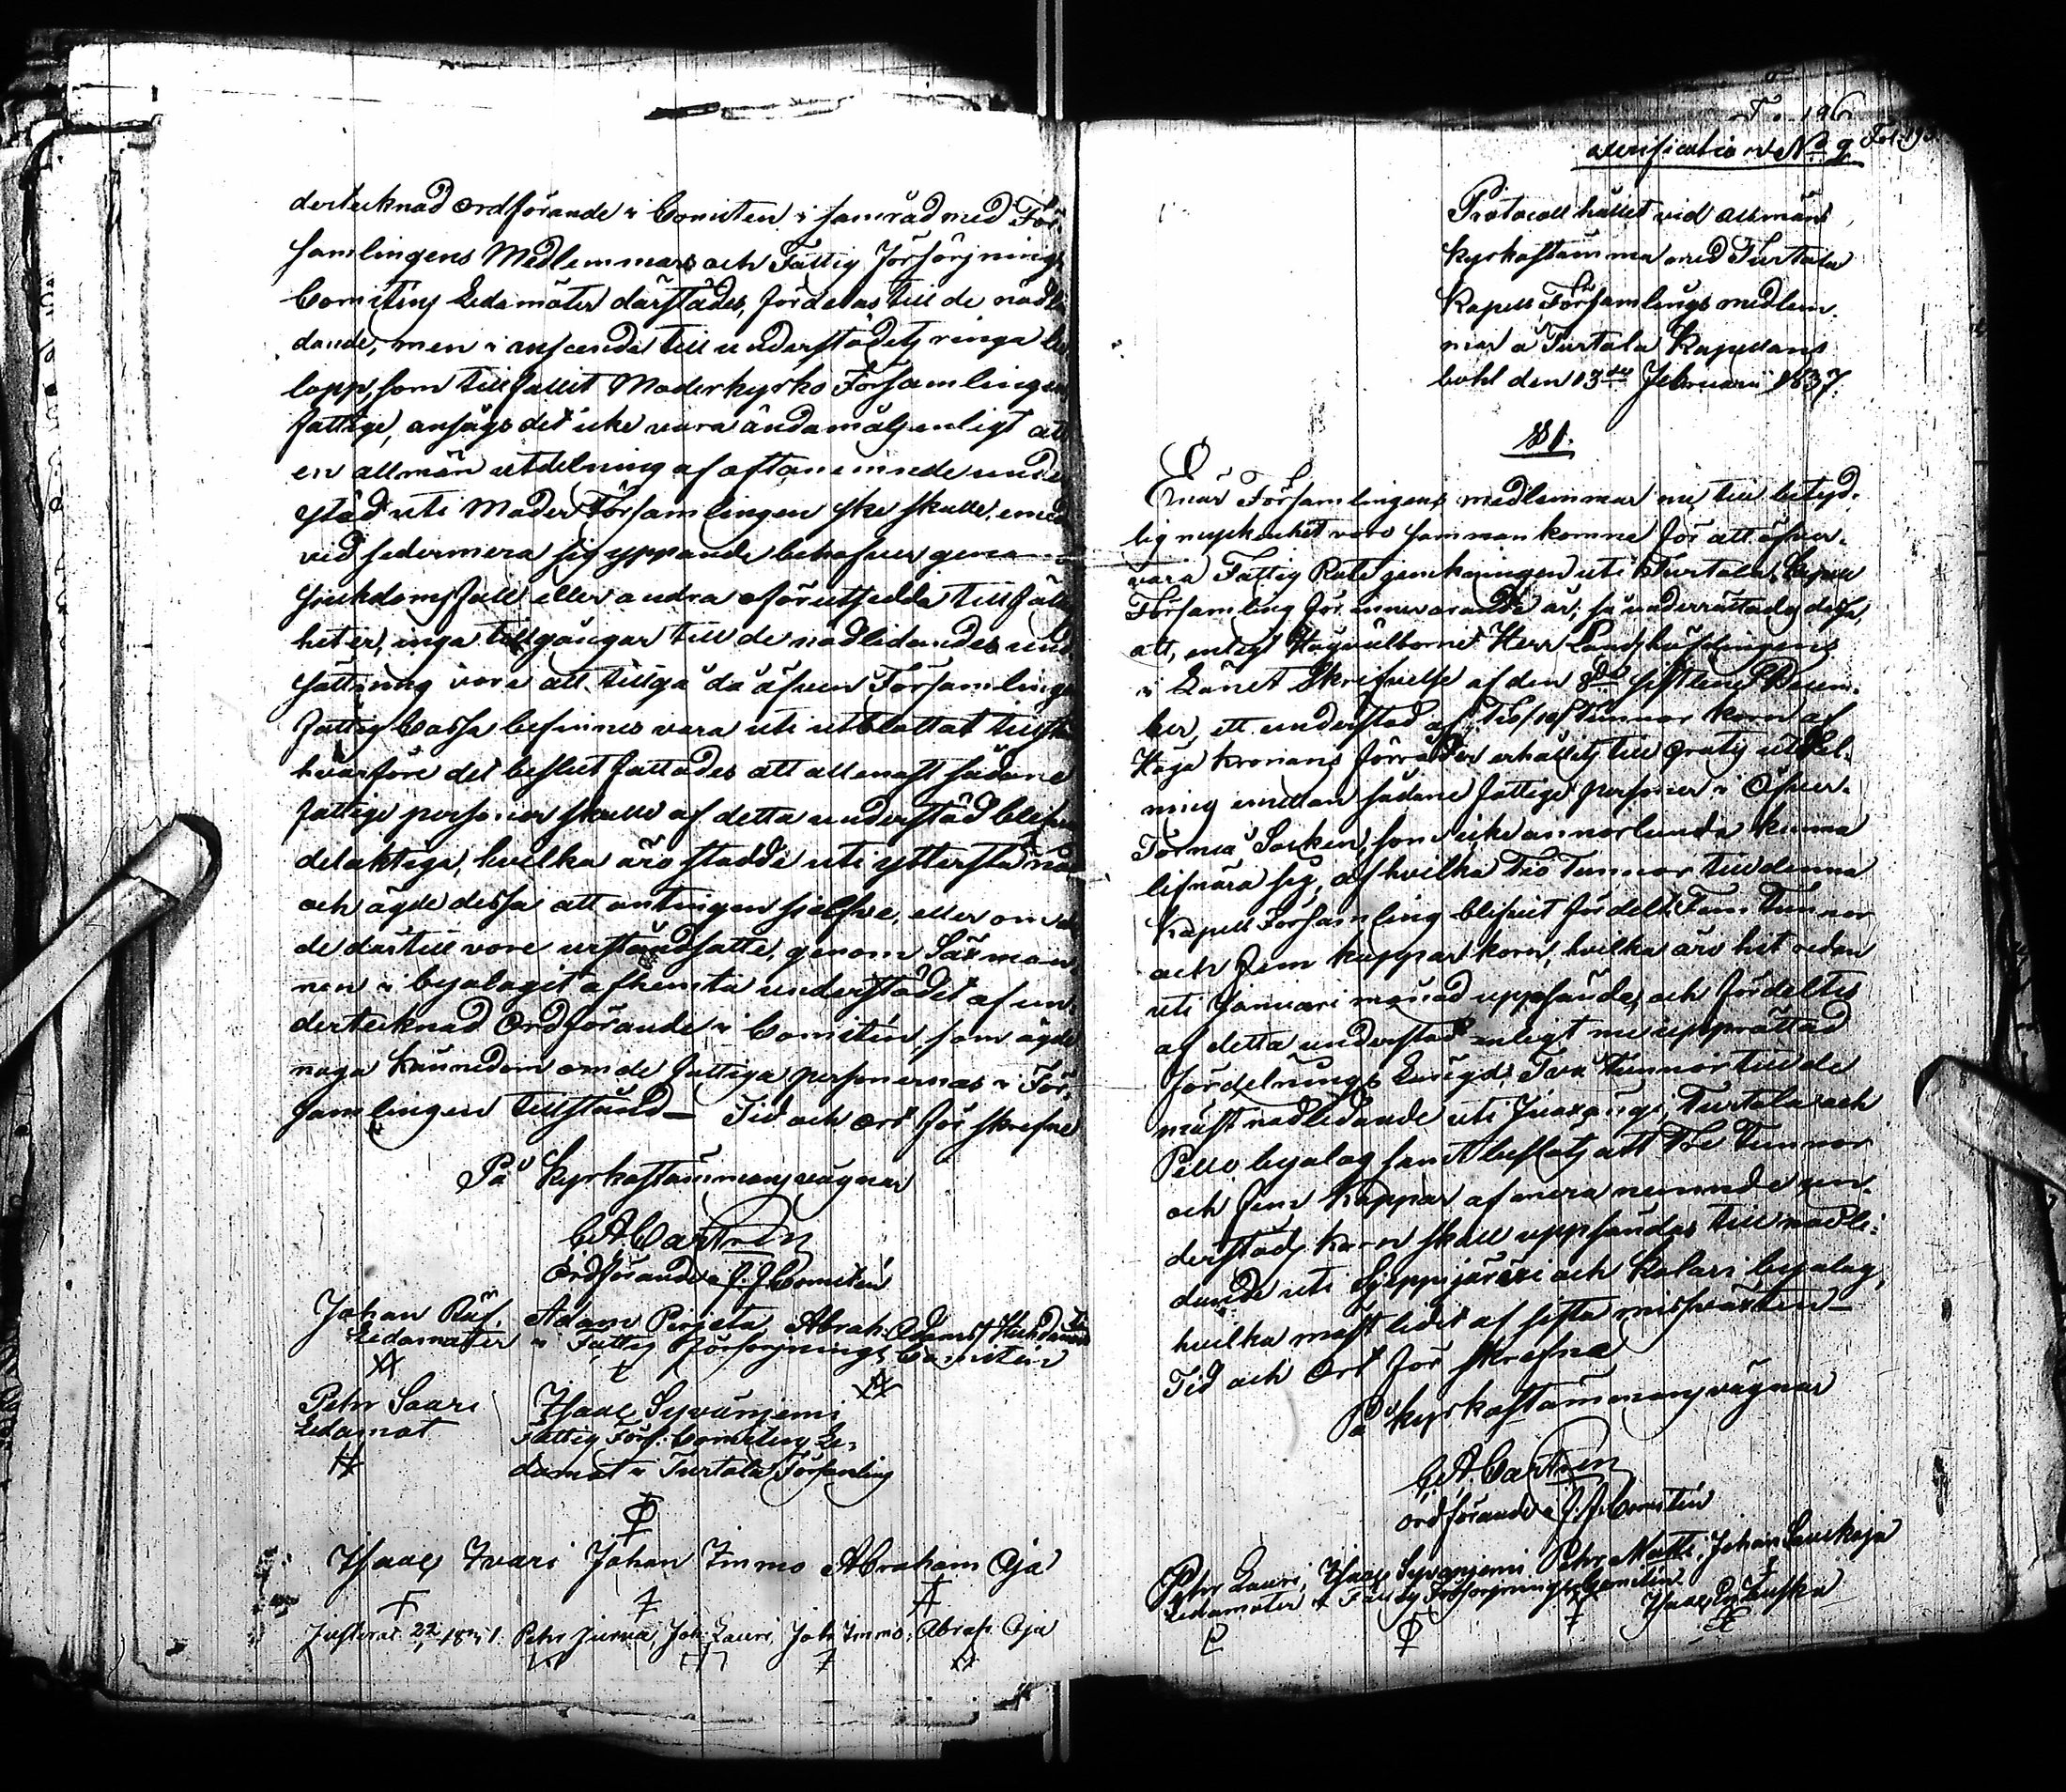 dertecknad ordförande i Comiten i samråd med För-
samlingens Medlemmar och Fattig Försörjnings
Comiténs Ledamöter därstädes, fördelas till de nödli
dande, men i anseende till understödets ringa be
lopp, som tillfallit Moderkyrko Församlingen
fattige, ansågs det icke vara ändamålsenligt att
en allmän utdelning af oftanemnde unde
stöd uti Moder Församlingen ske skulle, emed
vid sedermera sig yppande behofver genom
sjukdoms fall eller andra oförutsedda tillfäll
heter, inga tillgångar till de nödlidandes und
sättning vore att tillgå då äfven Församlings
fattig Cassa befinnes vara uti utblottat tillstå
hvarföre det beslut fattades att allenast sådane
fattige personer skulle af detta understöd blifva
delaktiga, hvilka äro stadde uti yttersta nöd
och ägde dessa att antingen sjelfve, eller om
de därtill vore urståndsatte, genom Sexman
nen i byalaget afhemta understödet af un-
dertecknad Ordförande i Comitén, som ägde
noga kännedom om de fattiga personernas i För-
samlingen tillstånd — Tid och ort för skrefne
På Kyrkostämmans vägnar
C. A. Castrén
Ordförande i F. F. Comitén
Johan Adam Pirjeta Abrah.
Ledamöter i Fattig Försörjnings Comitén
Petr Lauri Isaac Syvänjemi
Ledamot Fattig Förs. Comitens Le-
damot i Turtola Församling
Isaac Ivari Johan Immo Abraham Oja
Justerat Petr Juma, Joh. Lauri, Joh Immo, Abrah. Oja
verification No 9
Protocoll hållet vid allmän
kyrkostämma med Turtola
Kapell Församlings medlem-
mar å Turtola Kapellans
bohl den 13de Februarii 1837.
§ 1.
Enär Församlingens medlemmar nu till betyd-
lig myckenhet voro samman komne för att öfver-
vara Fattig Rote jemkningen uti Turtola Kapell
Församling för innevarande år, så underrättades desse,
att, enligt Högvälborne Herr Landshöfdingens
i Länet Skrifvelse af den 8de sistledne Decem-
ber, ett understöd af Tio /10/ Tunnor korn af
Höga Kronans förråder erhållits till gratis utdel-
ning emellan sådane fattige personer i Öfver-
Torneå Socken, som icke annorlunda kunna
lifnära sig, af hvilka Tio Tunnor till denna
Kapell Församling blifvit fördelt Fem Tunnor
och fem kappar korn, hvilka äro hit redan
uti Januari månad uppsände, och fördeltes
af detta understöd enligt nu upprättad
fördelnings Längd, Två Tunnor till de
mäst nödlidande uti Juoxangi, Turtola och
Pello byalag samt beslöts att Tre Tunnor
och fem kappar af mera nemnde un-
derstöds korn skall uppsändas till nödli-
dande uti Sieppijärvi och Kolari byalag,
hvilka mäst lidit af sista missväxten —
Tid och Ort för skrefne
På kyrkostämmans vägnar
C. A. Castrén
Ordförande i F. F. Comitén
Petr Lauri, Isaac Syvänjemi Petr Matti, Johan Lauskoja
Ledamöter i Fattig Försörjnings Comitén Isaac